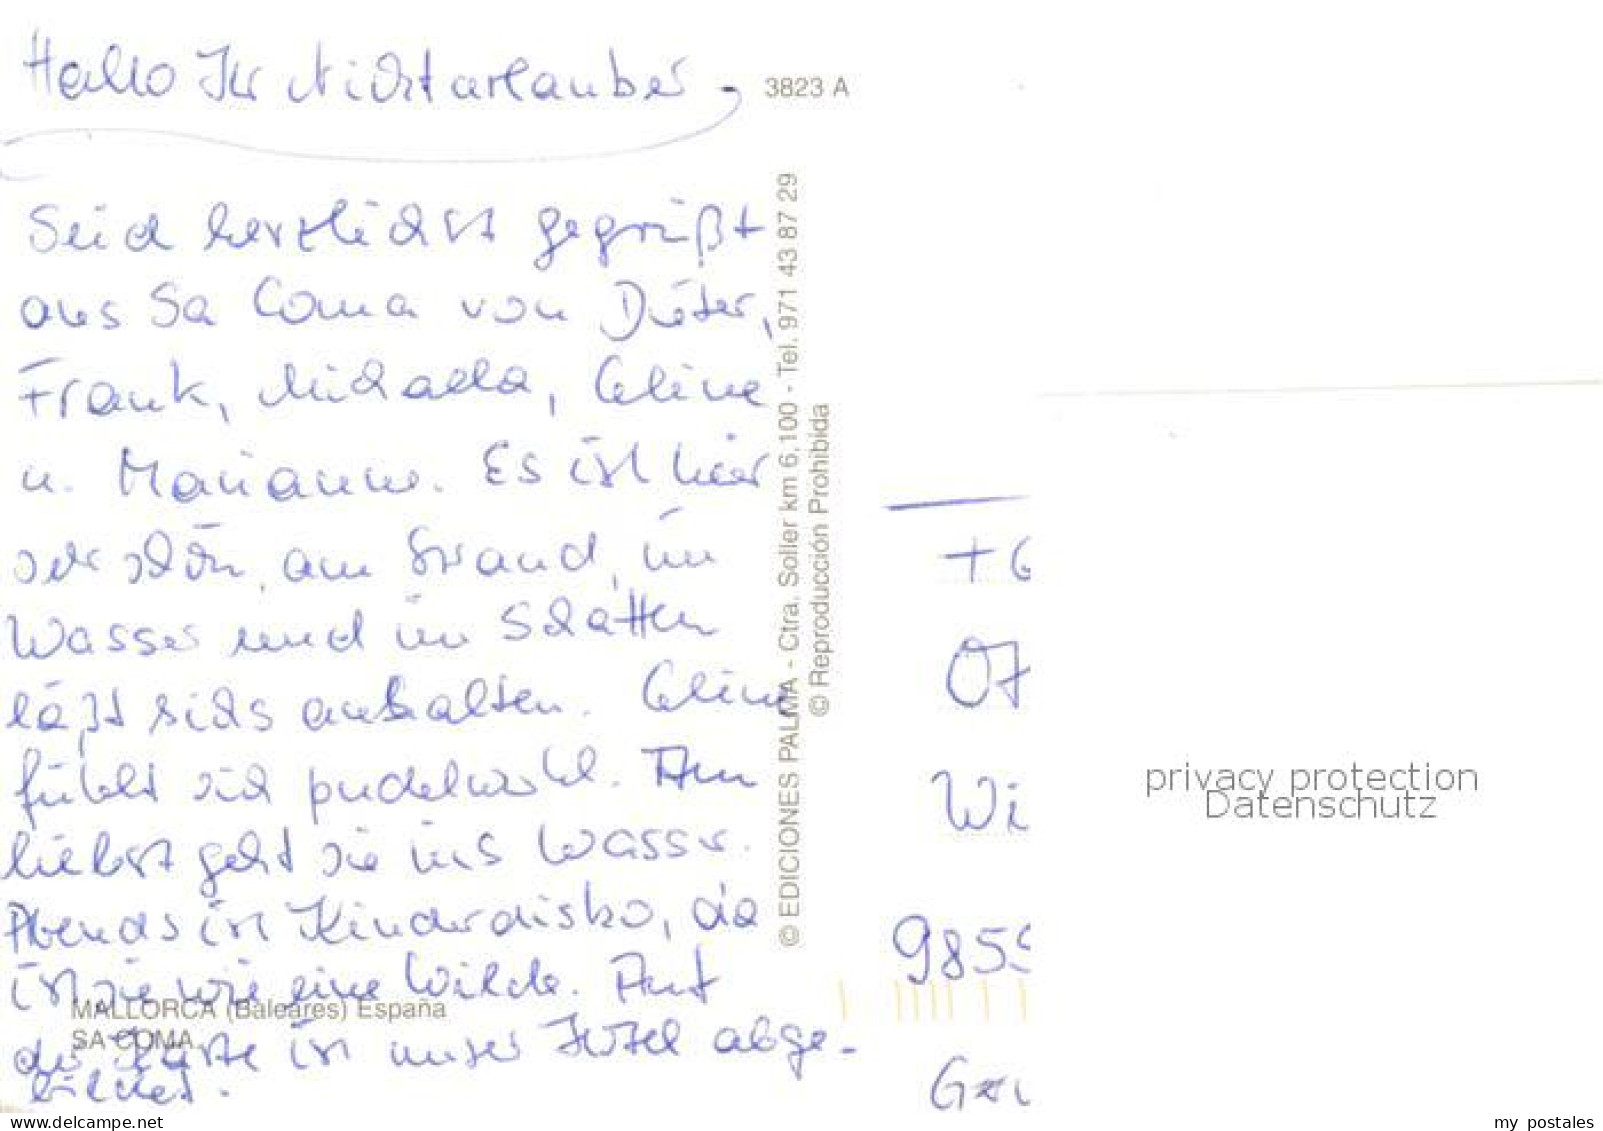 Hallo Ihr Nichturlauber,
3823 A
Seid herzlichst gegrüßt
aus Sa Coma von Dieter,
Frank, Michaela, Celine
u. Marianne. Es ist hier
sehr schön, am Strand, im
Wasser und im Schatten
läßt sichs aushalten. Celine
fühlt sich pudelwohl. Am
liebst geht sie ins Wasser.
Abends ist Kinderdisko, da
ist sie wie eine Wilde. Auf
der Karte ist unser Hotel abge-
bildet.
MALLORCA (Baleares) España
SA COMA
© EDICIONES PALMA - Ctra. Soller km 6,100 - Tel. 971 43 87 29
© Reproducción Prohibida
07
Wi
985
privacy protection
Datenschutz
delcampe.net
my postales